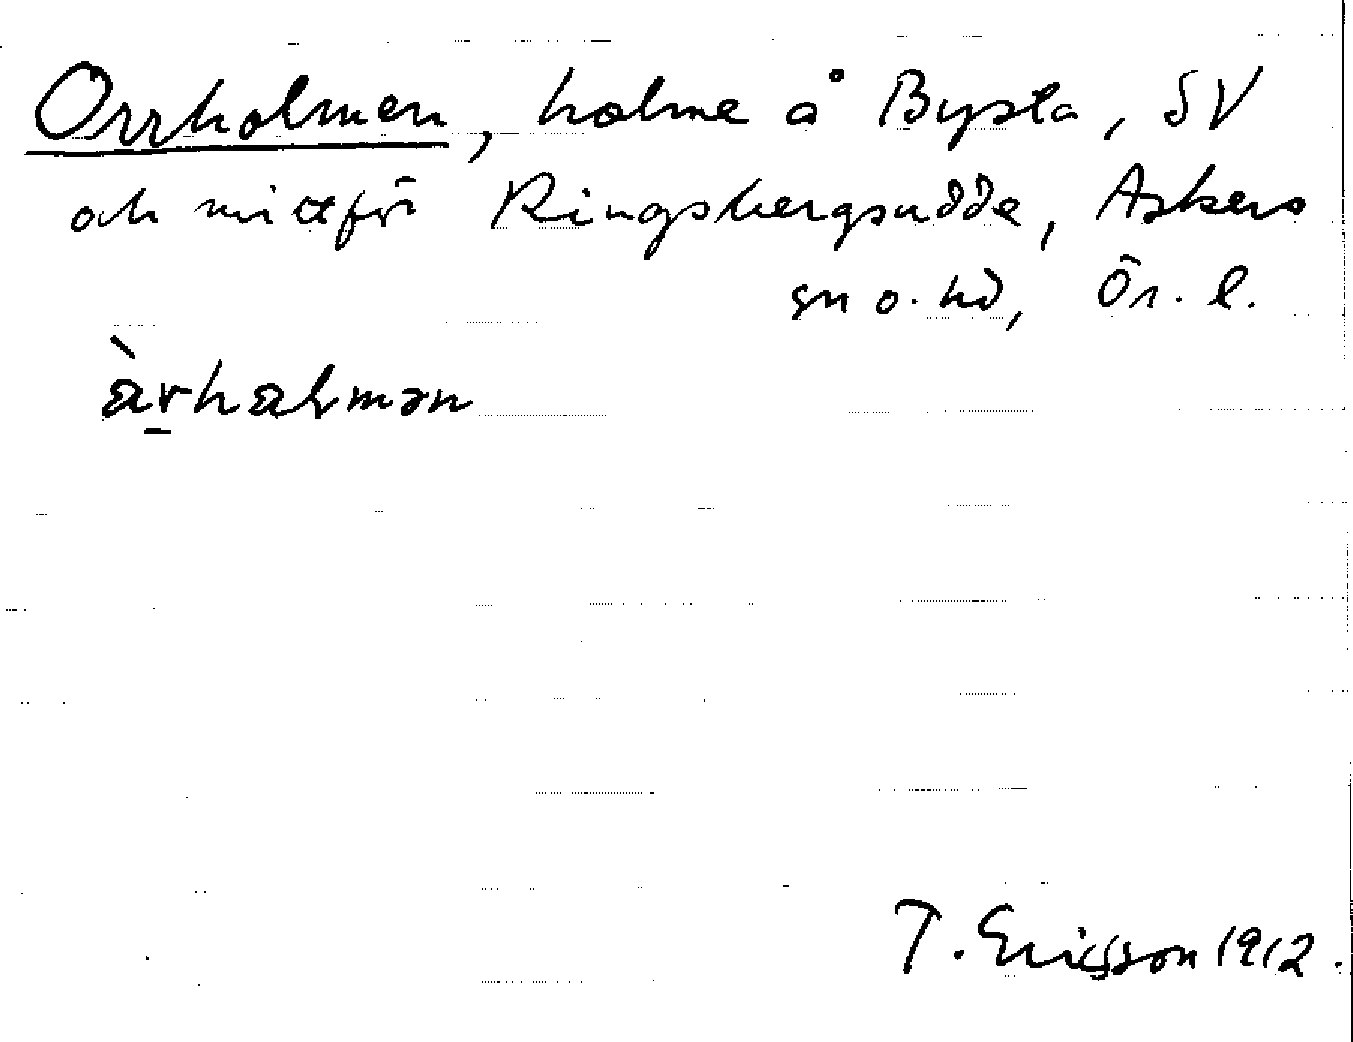 Orrholmen, holme å Bysta, SV
och mittför Ringsbergsudde, Askers
sn o. hd, Ör. l.
T. Ericsson 1912.